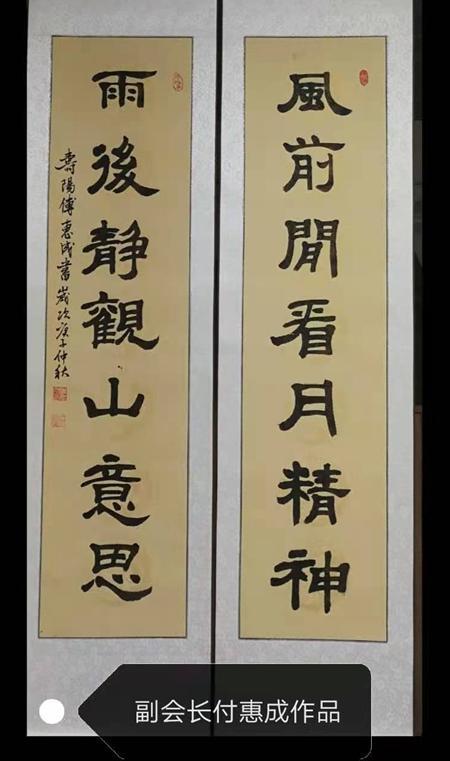 風前閒看月精神
雨後靜觀山意思
壽陽傅惠成書歲次庚子仲秋
副会长付惠成作品